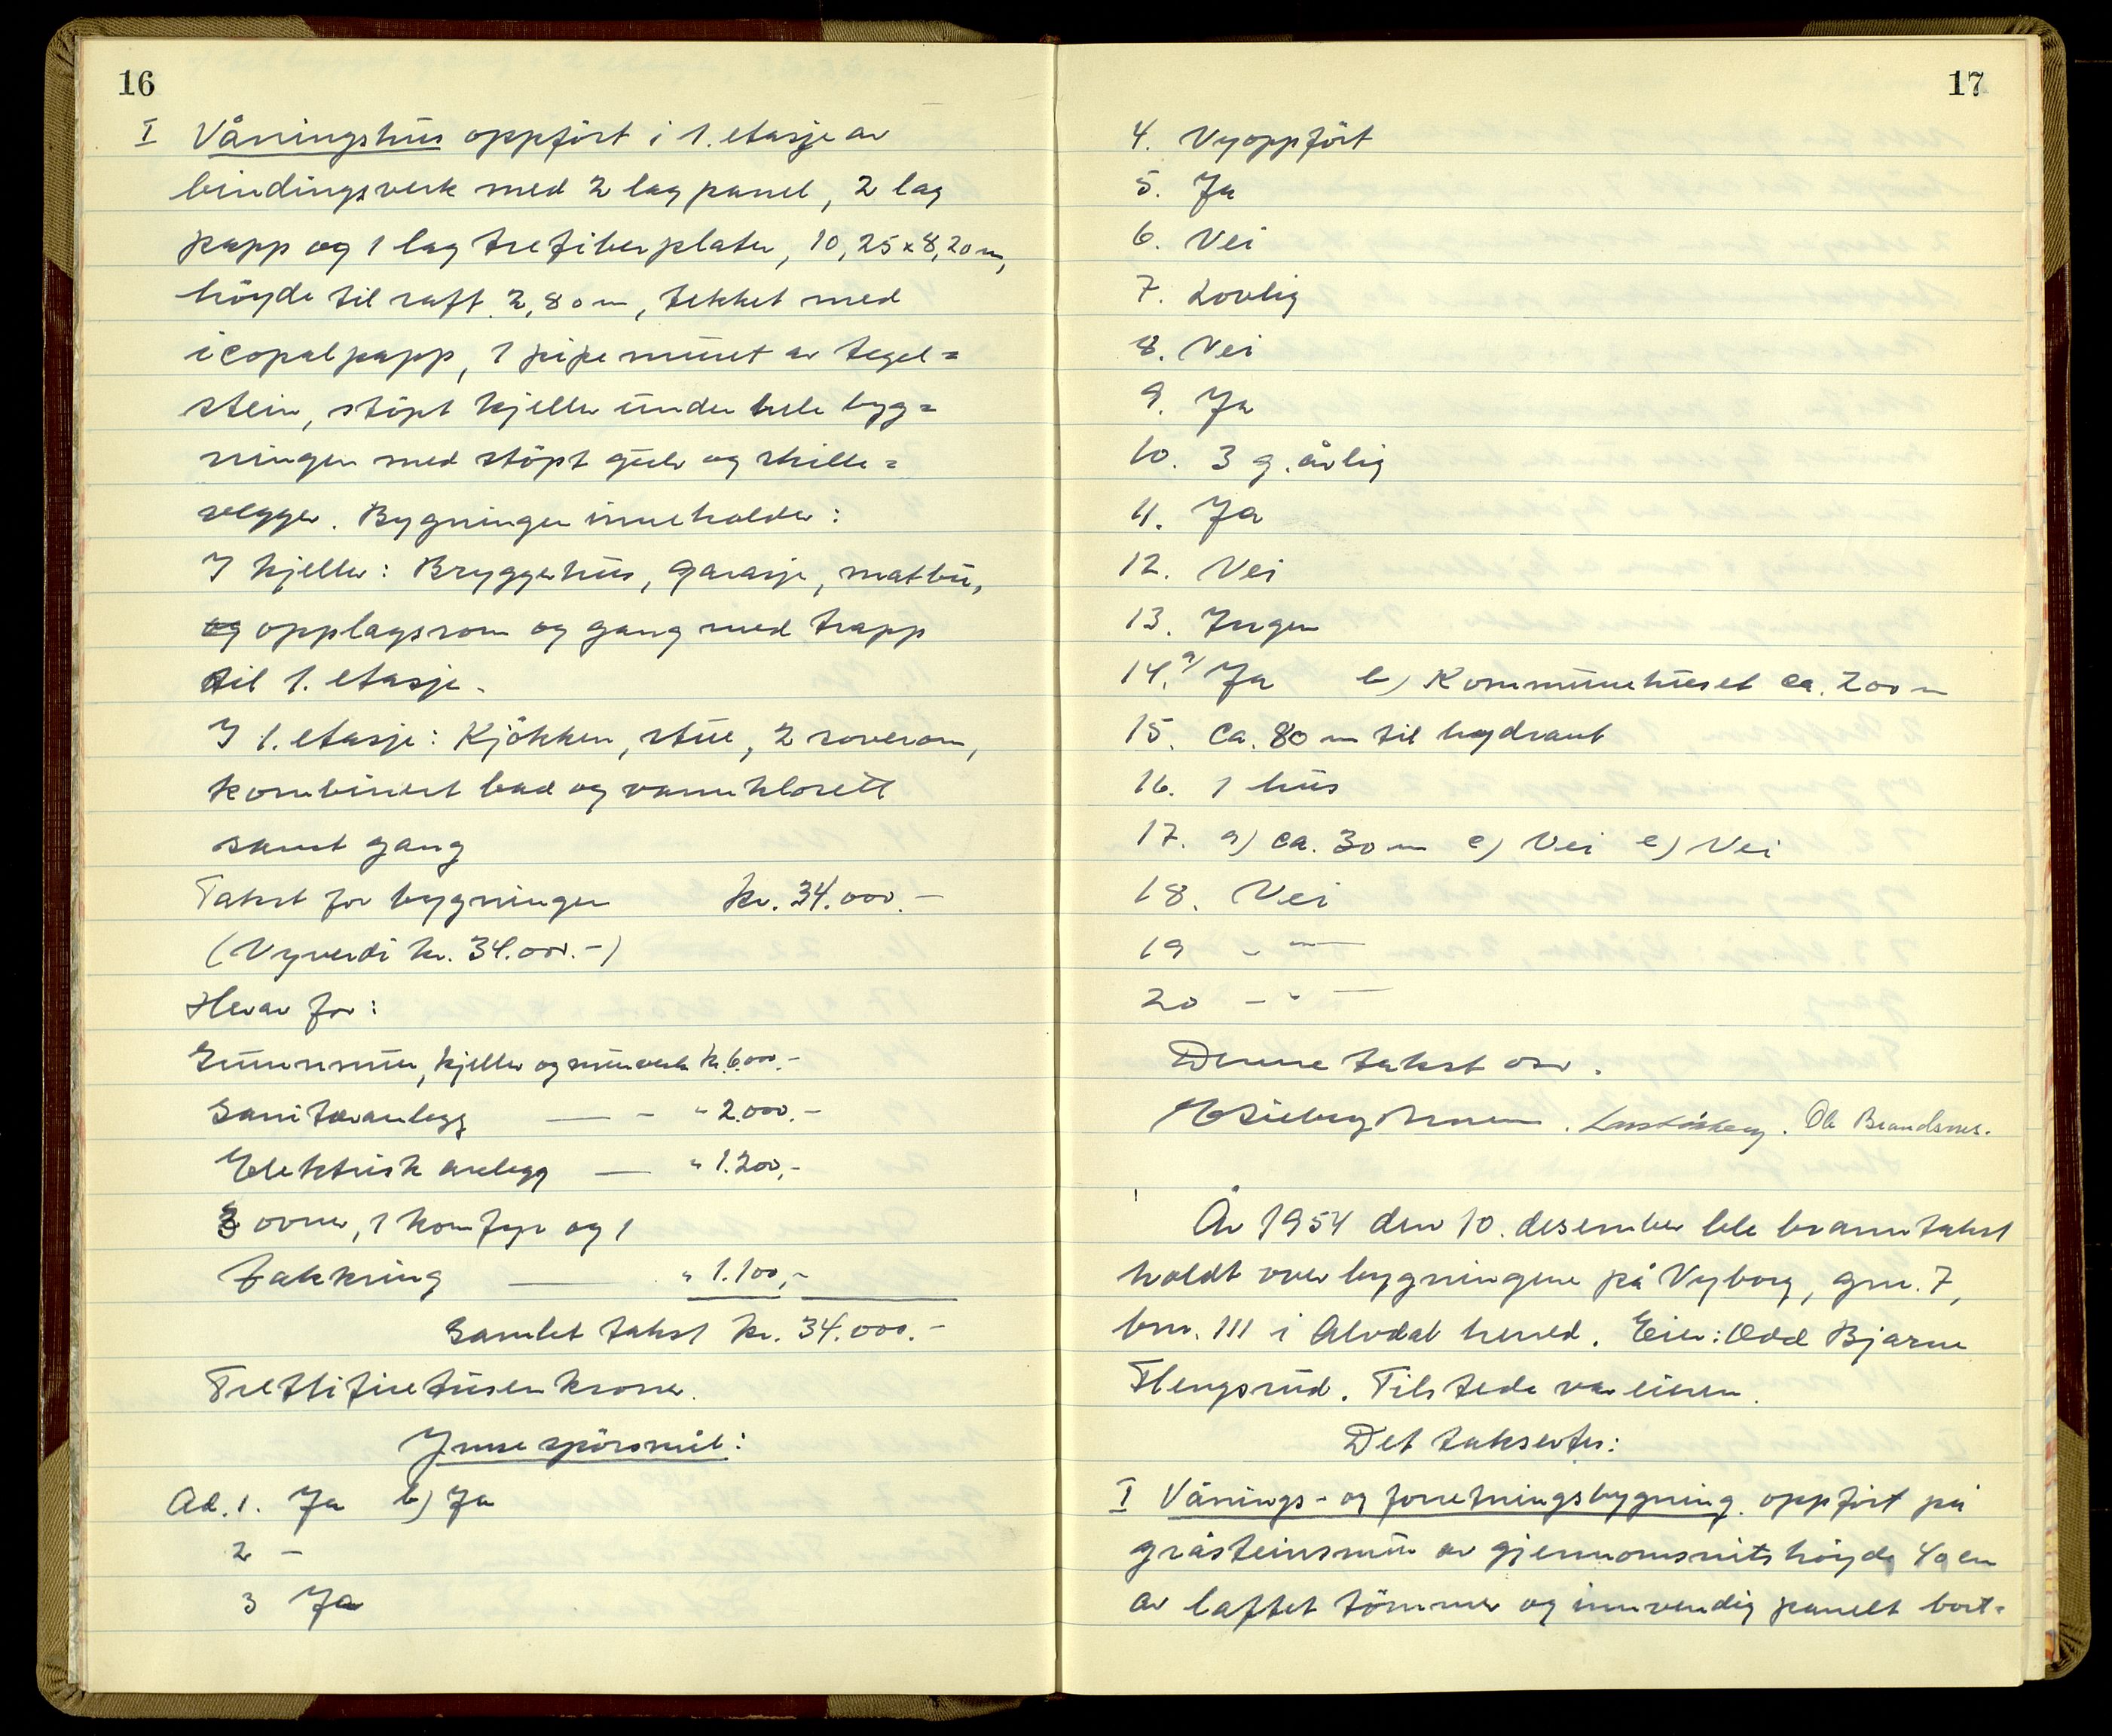 16
I Våningshus oppført i 1. etasje av
bindingsverk med 2 lag panel, 2 lag
papp og 1 lag trefiberplater, 10,25 x 8,20 m,
höyde til raft 2,80 m, tekket med
icopalpapp, 1 pipe muret av tegel=
stein, stöpt kjeller under hele byg=
ningen med stöpt gulv og skille=
vegger. Bygningen inneholder:
I kjeller: Bryggerhus, garasje, matbu,
og opplagsrom og gang med trapp
til 1. etasje.
I 1. etasje: Kjökken, stue, 2 soverom,
kombinert bad og vannklosett
samt gang
Takst for bygningen kr. 34.000.-
(Nyverdi kr. 34.000.-)
Herav for:
Grunnmur, kjeller og murverk kr. 6.000.-
Sanitæranlegg — - " 2.000.-
Elektrisk anlegg — " 1.200,-
3 ovner, 1 komfyr og 1
takkring — " 1.100,-
Samlet takst kr. 34.000.-
Trettifiretusen kroner.
Ymse spörsmål:
Ad. 1. Ja b) Ja
2 -
3 Ja
17
4. Nyoppfört
5. Ja
6. Nei
7. Lovlig
8. Nei
9. Ja
10. 3 g. årlig
11. Ja
12. Nei
13. Ingen
14. a) Ja b) Kommunehuset ca. 200 m
15. Ca. 80 m til hydrant
16. 1 hus
17. a) ca. 30 m c) Nei e) Nei
18. Nei
19 - " —
20 - " —
Denne takst osv.
Ola Brandsnes.
År 1954 den 10. desember ble branntakst
holdt over bygningene på Nyborg, gnr. 7,
bnr. 111 i Alvdal herred. Eier: Odd Bjarne
Flengsrud. Tilstede var eieren.
Det taksertes:
I Vånings- og forretningsbygning oppfört på
gråsteinsmur av gjennomsnitshöyde 40 cm
av laftet tömmer og innvendig panelt bort=